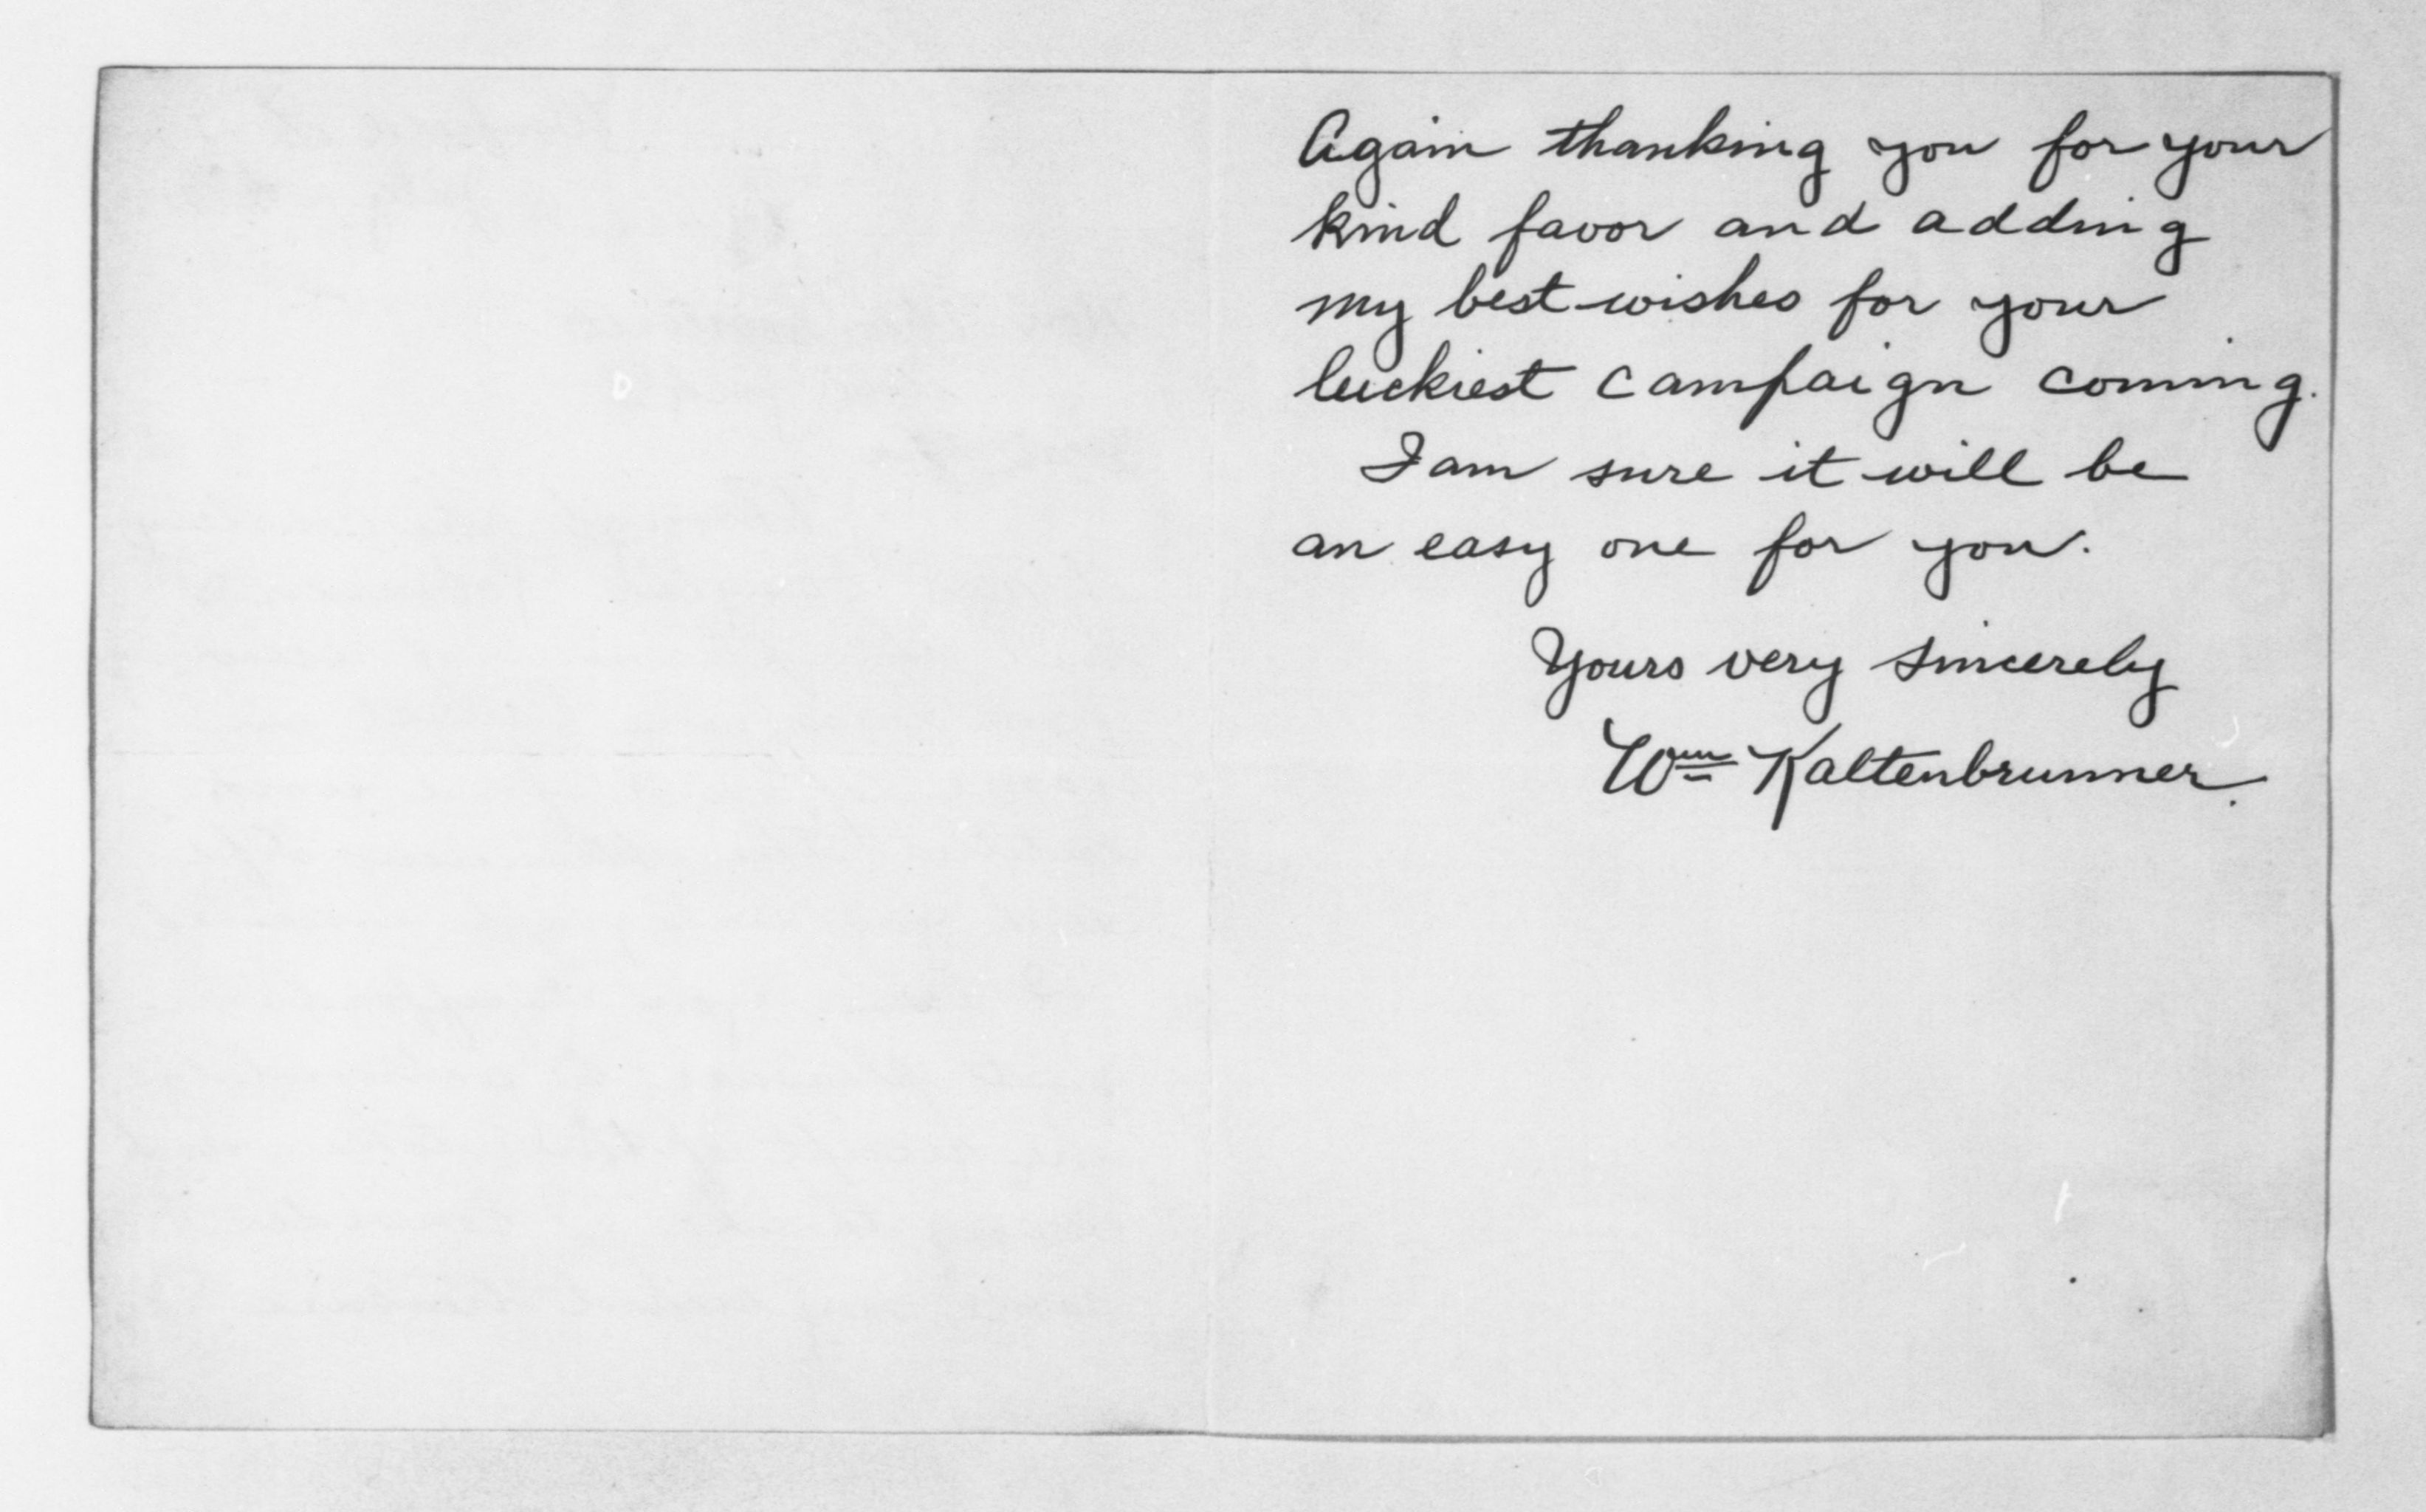 Again thanking you for your
kind favor and adding
my best wishes for your
luckiest campaign coming.
I am sure it will be
an easy one for you.
Yours very sincerely
Wm Kaltenbrunner.